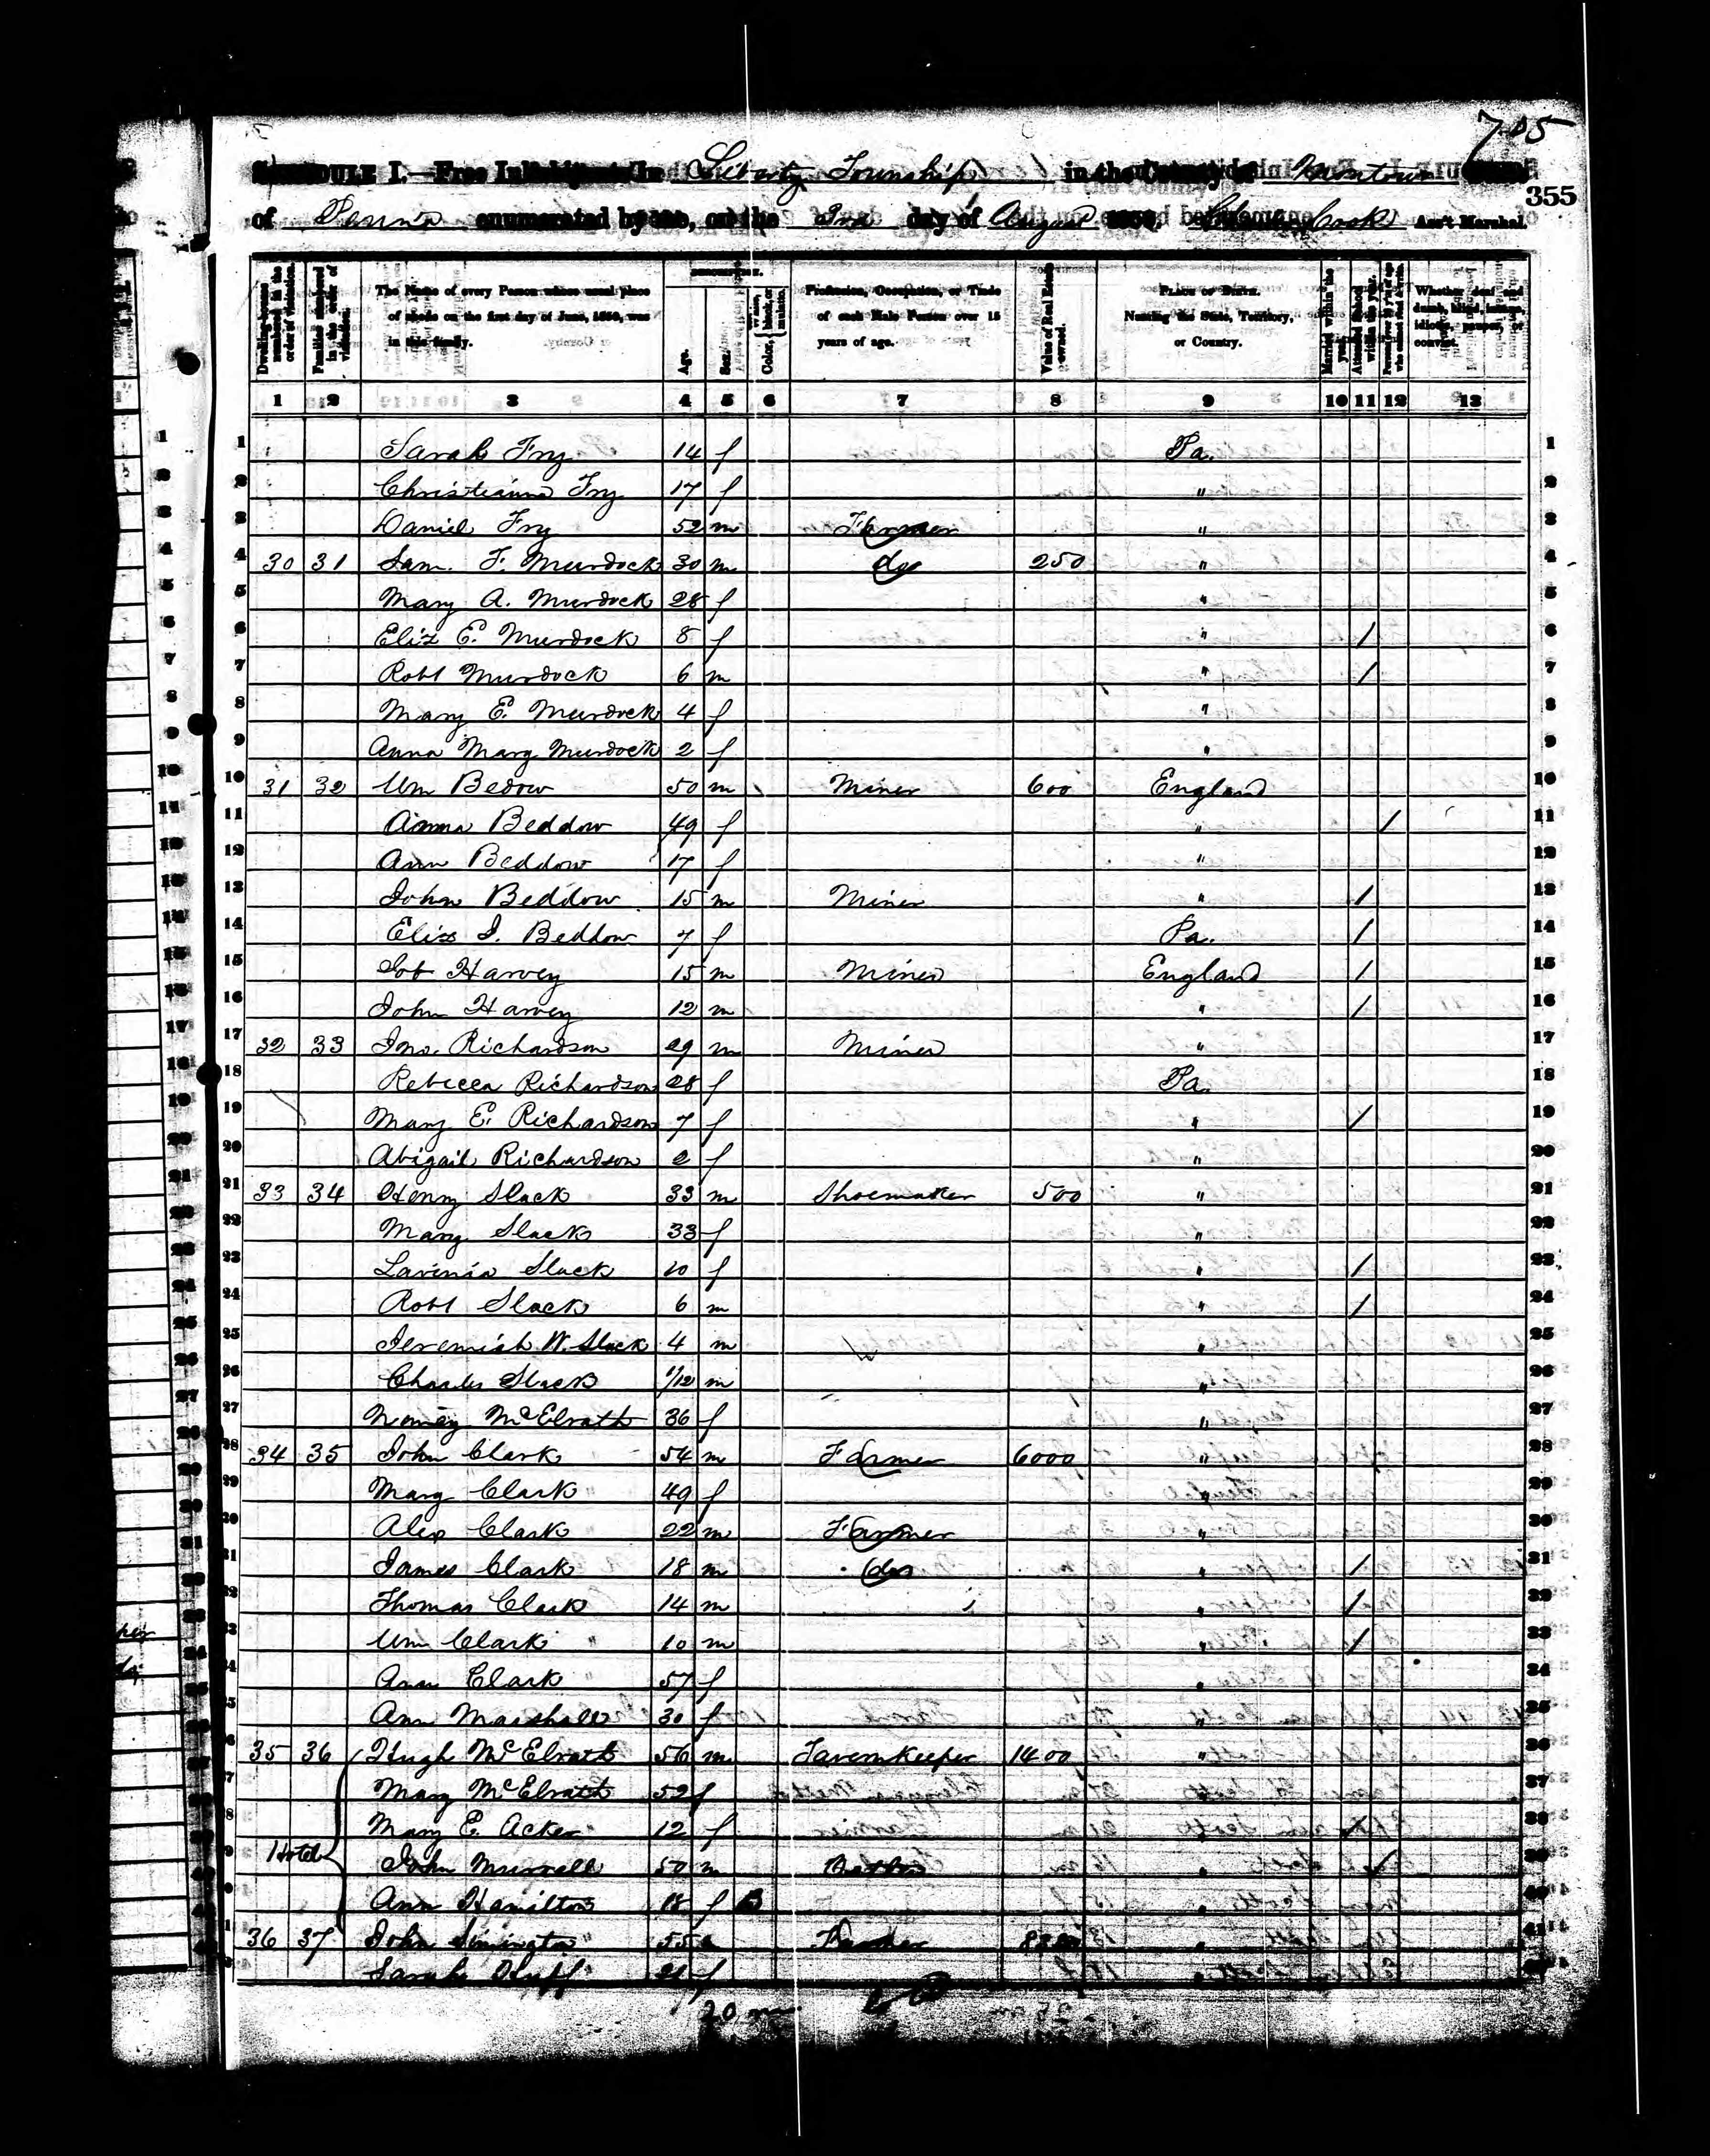 705
355
SCHEDULE I.—Free Inhabitants in Liberty Township in the County of Montour State
of Penn'a enumerated by me, on the 2nd day of August 1850. Cook Ass't Marshal.
Dwelling-houses numbered in the order of visitation.
Families numbered in the order of visitation.
The Name of every Person whose usual place of abode on the first day of June, 1850, was in this family.
DESCRIPTION.
Age.
Sex.
Color, { White, black, or mulatto.
Profession, Occupation, or Trade of each Male Person over 15 years of age.
Value of Real Estate owned.
PLACE OF BIRTH. Naming the State, Territory, or Country.
Married within the year.
Attended School within the year.
Persons over 20 y'rs of age who cannot read & write.
Whether deaf and dumb, blind, insane, idiotic, pauper, or convict.
1 2 3 4 5 6 7 8 9 10 11 12 13
1 Sarah Fry 14 f Pa. 1
2 Christianna Fry 17 f " 2
3 Daniel Fry 52 m Farmer " 3
4 30 31 Sam. F. Murdock 30 m do 250 " 4
5 Mary A. Murdock 28 f " 5
6 Eliz E. Murdock 8 f " / 6
7 Robt Murdock 6 m " / 7
8 Mary E. Murdock 4 f " 8
9 Anna Mary Murdock 2 f " 9
10 31 32 Wm Bedow 50 m Miner 600 England 10
11 Anna Beddow 49 f " / 11
12 Ann Beddow 17 f " 12
13 John Beddow 15 m Miner " / 13
14 Eliz J. Beddow 7 f Pa. / 14
15 Job Harvey 15 m Miner England / 15
16 John Harvey 12 m " / 16
17 32 33 Jno. Richardson 29 m Miner " 17
18 Rebecca Richardson 28 f Pa. 18
19 Mary E. Richardson 7 f " / 19
20 Abigail Richardson 2 f " 20
21 33 34 Henry Slack 33 m Shoemaker 500 " 21
22 Mary Slack 33 f " 22
23 Lavinia Slack 10 f " / 23
24 Robt Slack 6 m " / 24
25 Jeremiah W. Slack 4 m " 25
26 Charles Slack 1/12 m " 26
27 Nancy McElrath 36 f " 27
28 34 35 John Clark 54 m Farmer 6000 " 28
29 Mary Clark 49 f " 29
30 Alex Clark 22 m Farmer " 30
31 James Clark 18 m do " / 31
32 Thomas Clark 14 m " / 32
33 Wm Clark 10 m " / 33
34 Ann Clark 57 f " 34
35 Ann Marshall 30 f " 35
36 35 36 Hugh McElrath 56 m Tavern Keeper 1400 " 36
37 Mary McElrath 52 f 37
38 Mary E. Acker 12 f " / 38
39 Hotel John Murrell 50 m " / 39
40 Ann Hamilton 18 f B " 40
41 36 37 John Simington 55 Farmer 41
42 Sarah Huff 21 f 42
20 m